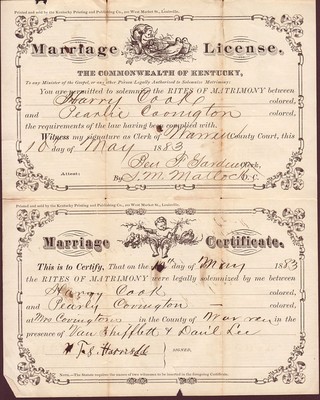 Printed and sold by the Kentucky Printing and Publishing Co., West Market St., Louisville.
Marriage License.
THE COMMONWEALTH OF KENTUCKY,
To any Minister of the Gospel, or any other Person Legally Authorized to Solemnize Matrimony:
You are permitted to solemnize the RITES OF MATRIMONY between
Harry Cook colored,
and Pearlie Covington colored,
the requirements of the law having been complied with.
Witness my signature as Clerk of Warren County Court, this
10 day of May 1883
Clerk,
Attest: By S. M. Matlock D. C.
Printed and sold by the Kentucky Printing and Publishing Co., West Market St., Louisville.
Marriage Certificate.
This is to Certify, That on the day of May 1883
the RITES OF MATRIMONY were legally solemnized by me between
Harry Cook colored,
and Pearly Covington colored,
at Mrs Covingtons in the County of Warren in the
presence of Van Shifflett &amp; Lee
SIGNED,
NOTE.—The Statute requires the names of two witnesses to be inserted in the foregoing Certificate.